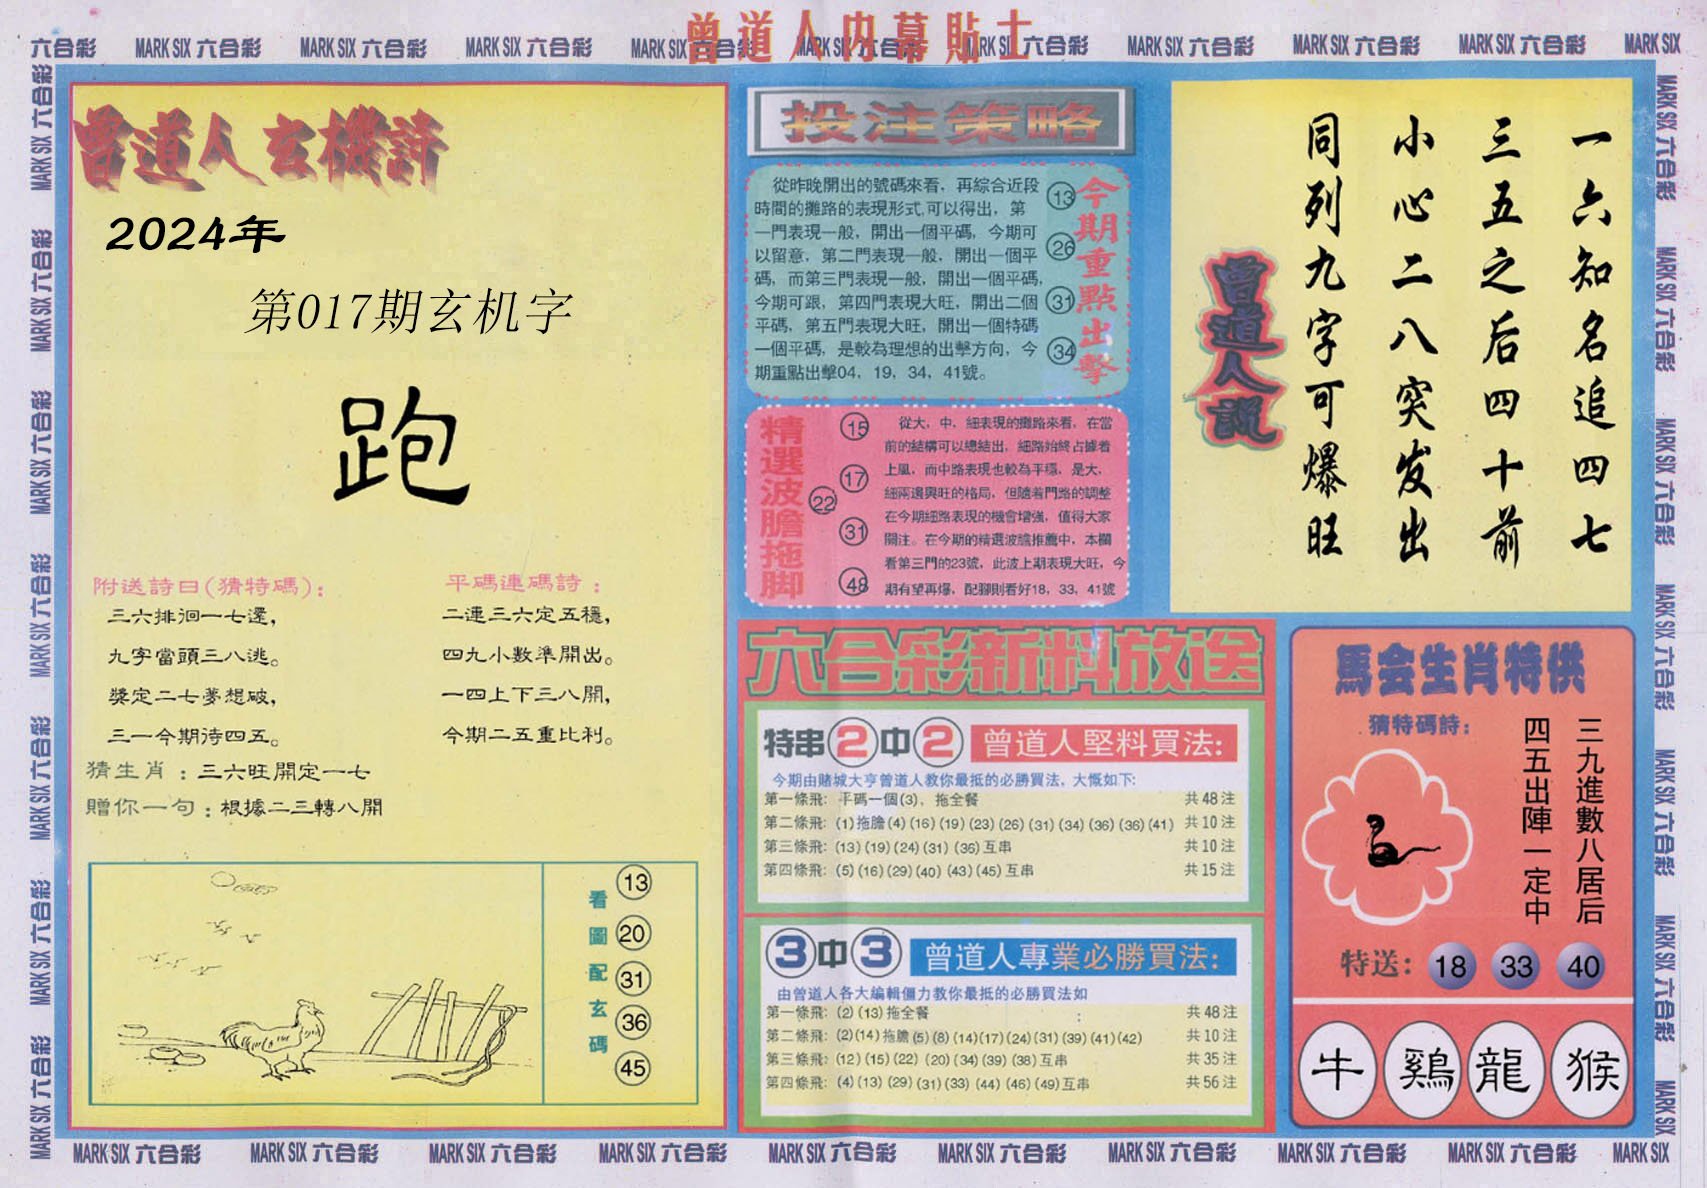 曾道人内幕貼士
六合彩 MARK SIX 六合彩 MARK SIX 六合彩 MARK SIX 六合彩 MARK SIX 六合彩 MARK SIX 六合彩 MARK SIX 六合彩 MARK SIX 六合彩 MARK SIX 六合彩 MARK SIX 六合彩 MARK SIX
曾道人玄機詩
2024年
第017期玄机字
跑
附送詩曰(猜特碼):
三六排徊一七還,
九字當頭三八逃。
獎定二七夢想破,
三一今期待四五。
平碼連碼詩:
二連三六定五穩,
四九小數準開出。
一四上下三八開,
今期二五重比利。
猜生肖:三六旺開定一七
贈你一句:根據二三轉八開
看圖配玄碼
13
20
31
36
45
投注策略
從昨晚開出的號碼來看，再綜合近段
時間的攤路的表現形式,可以得出，第
一門表現一般，開出一個平碼，今期可
以留意，第二門表現一般，開出一個平
碼，而第三門表現一般，開出一個平碼，
今期可跟，第四門表現大旺，開出二個
平碼，第五門表現大旺，開出一個特碼
一個平碼，是較為理想的出擊方向，今
期重點出擊04，19，34，41號。
13
26
31
34
今期重點出擊
精選波膽拖脚
15
17
22
31
48
從大，中，細表現的攤路來看，在當
前的結構可以總結出，細路始終占據着
上風，而中路表現也較為平穩，是大，
細兩邊興旺的格局，但隨着門路的調整
在今期細路表現的機會增強，值得大家
關注。在今期的精選波膽推薦中，本欄
看第三門的23號，此波上期表現大旺，今
期有望再爆，配腳則看好18，33，41號
曾道人説
一六知名追四七
三五之后四十前
小心二八突发出
同列九字可爆旺
六合彩新料放送
特串2中2 曾道人堅料買法:
今期由賭城大亨曾道人教你最抵的必勝買法，大慨如下:
第一條飛: 平碼一個(3)，拖全餐 共48注
第二條飛: (1)拖膽(4)(16)(19)(23)(26)(31)(34)(36)(36)(41) 共10注
第三條飛: (13)(19)(24)(31)(36)互串 共10注
第四條飛: (5)(16)(29)(40)(43)(45)互串 共15注
3中3 曾道人專業必勝買法:
由曾道人各大編輯僵力教你最抵的必勝買法如
第一條飛: (2)(13)拖全餐 共48注
第二條飛: (2)(14)拖膽(5)(8)(14)(17)(24)(31)(39)(41)(42) 共10注
第三條飛: (12)(15)(22)(20)(34)(39)(38)互串 共35注
第四條飛: (4)(13)(29)(31)(33)(44)(46)(49)互串 共56注
馬会生肖特供
猜特碼詩:
三九進數八居后
四五出陣一定中
特送: 18 33 40
牛 鷄 龍 猴
MARK SIX 六合彩 MARK SIX 六合彩 MARK SIX 六合彩 MARK SIX 六合彩 MARK SIX 六合彩 MARK SIX 六合彩 MARK SIX 六合彩 MARK SIX 六合彩 MARK SIX 六合彩 MARK SIX